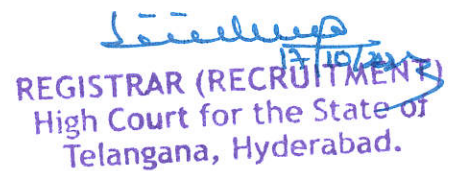 17/10/22
REGISTRAR (RECRUITMENT)
High Court for the State of
Telangana, Hyderabad.